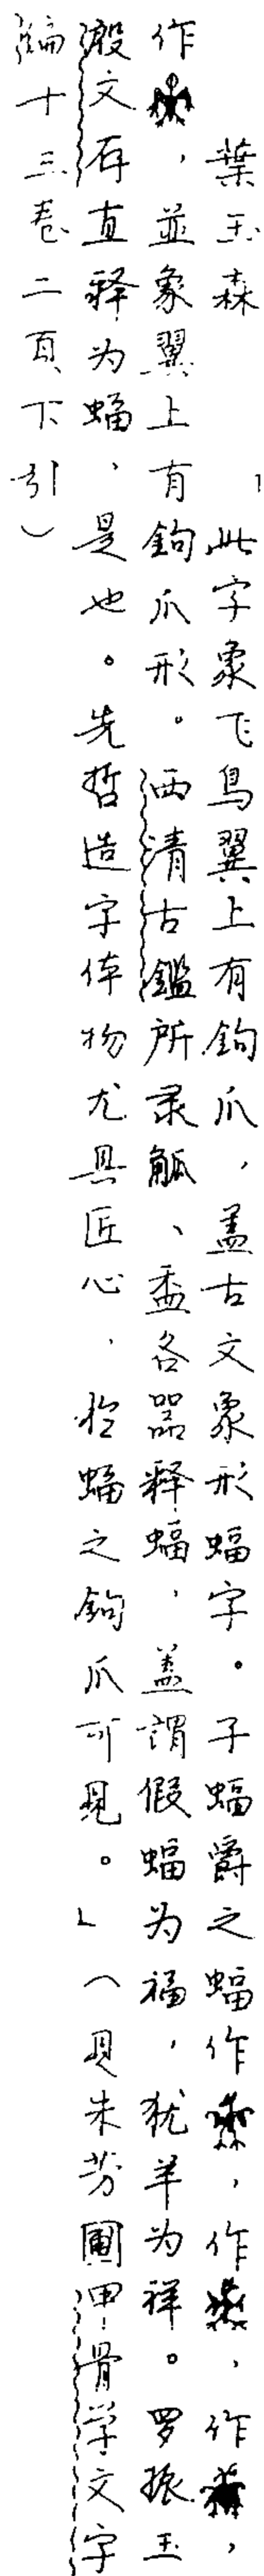 葉玉森 「此字象飞鸟翼上有鉤爪，盖古文象形蝠字。子蝠爵之蝠作，作，作，
作，並象翼上有鉤爪形。西清古鑑所录觚、盉各器释蝠，盖謂假蝠为福，犹羊为祥。罗振玉
殷文存直释为蝠，是也。先哲造字体物尤具匠心，於蝠之鉤爪可見。」（見朱芳圃甲骨学文字
編十三卷二頁下引）